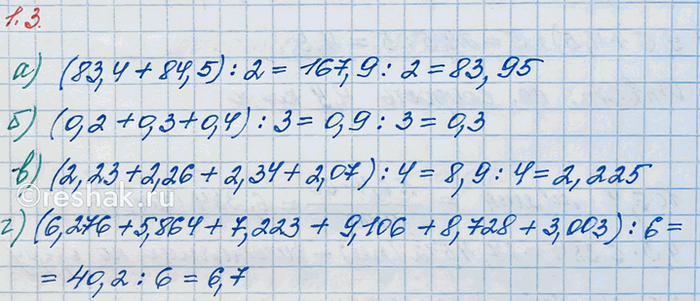 1.3.
а) (83,4 + 84,5) : 2 = 167,9 : 2 = 83,95
б) (0,2 + 0,3 + 0,4) : 3 = 0,9 : 3 = 0,3
в) (2,23 + 2,26 + 2,34 + 2,07) : 4 = 8,9 : 4 = 2,225
reshak.ru
г) (6,276 + 5,864 + 7,223 + 9,106 + 8,728 + 3,003) : 6 =
= 40,2 : 6 = 6,7